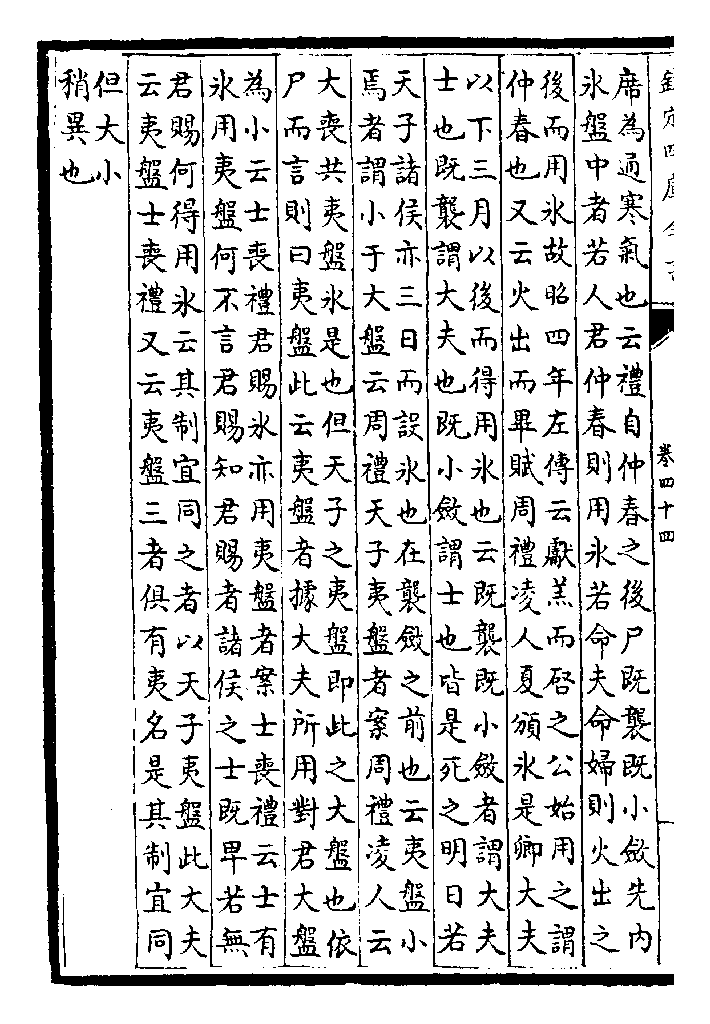 欽定四庫全書
卷四十四
席為通寒氣也云禮自仲春之後尸既襲既小斂先內
氷盤中者若人君仲春則用氷若命夫命婦則火出之
後而用氷故昭四年左傳云獻羔而啓之公始用之謂
仲春也又云火出而畢賦周禮凌人夏頒氷是卿大夫
以下三月以後而得用氷也云既襲既小斂者謂大夫
士也既襲謂大夫也既小斂謂士也皆是死之明日若
天子諸侯亦三日而設氷也在襲斂之前也云夷盤小
焉者謂小于大盤云周禮天子夷盤者案周禮凌人云
大喪共夷盤氷是也但天子之夷盤即此之大盤也依
尸而言則曰夷盤此云夷盤者據大夫所用對君大盤
為小云士喪禮君賜氷亦用夷盤者案士喪禮云士有
氷用夷盤何不言君賜知君賜者諸侯之士既卑若無
君賜何得用氷云其制宜同之者以天子夷盤此大夫
云夷盤士喪禮又云夷盤三者俱有夷名是其制宜同
但大小
稍異也